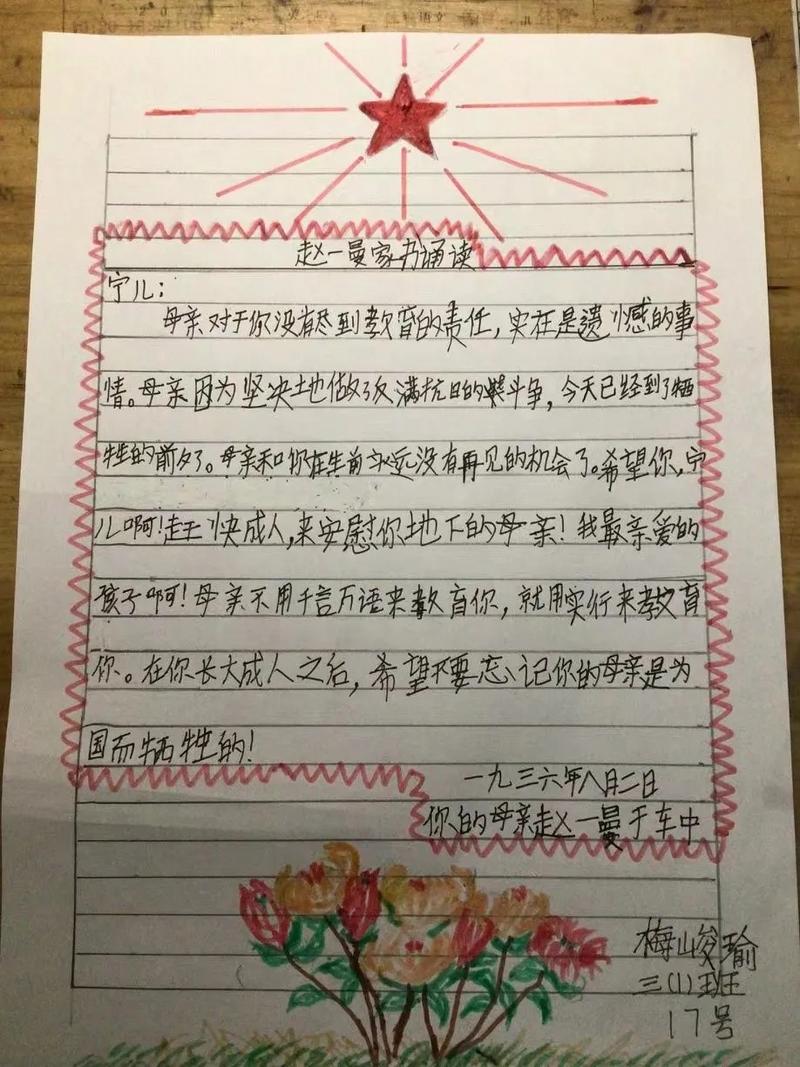 赵一曼家书诵读
宁儿：
母亲对于你没有尽到教育的责任，实在是遗憾的事
情。母亲因为坚决地做了反满抗日的斗争，今天已经到了牺
牲的前夕了。母亲和你在生前永远没有再见的机会了。希望你，宁
儿啊！赶快成人，来安慰你地下的母亲！我最亲爱的
孩子啊！母亲不用千言万语来教育你，就用实行来教育
你。在你长大成人之后，希望不要忘记你的母亲是为
国而牺牲的！
一九三六年八月二日
你的母亲赵一曼于车中
梅山俊瑜
三（1）班
17号